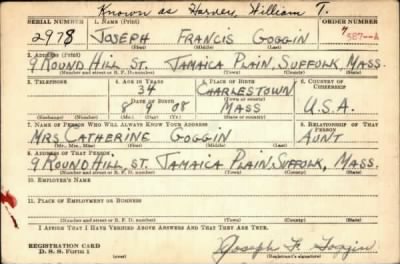 Known as Harney, William T.
SERIAL NUMBER 1. NAME (Print) ORDER NUMBER
2978 JOSEPH FRANCIS GOGGIN 587-A
(First) (Middle) (Last)
2. ADDRESS (Print)
9 ROUND HILL ST. JAMAICA PLAIN, SUFFOLK, MASS.
(Number and street or R. F. D. number) (Town) (County) (State)
3. TELEPHONE 4. AGE IN YEARS 5. PLACE OF BIRTH 6. COUNTRY OF CITIZENSHIP
34 CHARLESTOWN
DATE OF BIRTH (Town or county)
8 9 08 MASS U.S.A.
(Exchange) (Number) (Mo.) (Day) (Yr.) (State or country)
7. NAME OF PERSON WHO WILL ALWAYS KNOW YOUR ADDRESS 8. RELATIONSHIP OF THAT PERSON
MRS CATHERINE GOGGIN AUNT
(Mr., Mrs., Miss) (First) (Middle) (Last)
9. ADDRESS OF THAT PERSON
9 ROUND HILL, ST. JAMAICA PLAIN, SUFFOLK, MASS.
(Number and street or R. F. D. number) (Town) (County) (State)
10. EMPLOYER'S NAME
11. PLACE OF EMPLOYMENT OR BUSINESS
(Number and street or R. F. D. number) (Town) (County) (State)
I AFFIRM THAT I HAVE VERIFIED ABOVE ANSWERS AND THAT THEY ARE TRUE.
REGISTRATION CARD
D. S. S. Form 1
Joseph F. Goggin
(Registrant's signature)